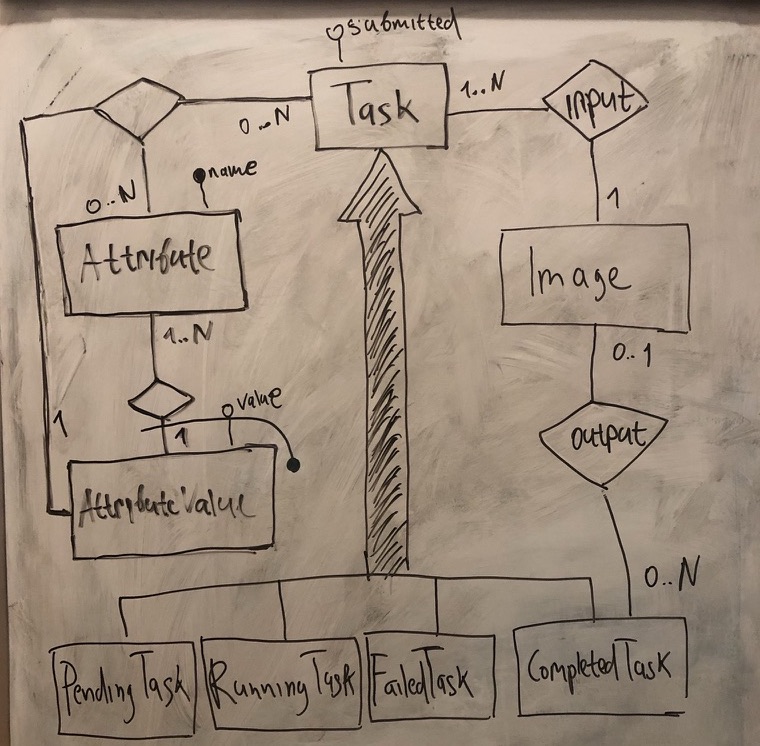 submitted
Task
1..N
input
0..N
name
0..N
1
Attribute
Image
1..N
0..1
value
1
1
output
AttributeValue
0..N
PendingTask
RunningTask
FailedTask
CompletedTask